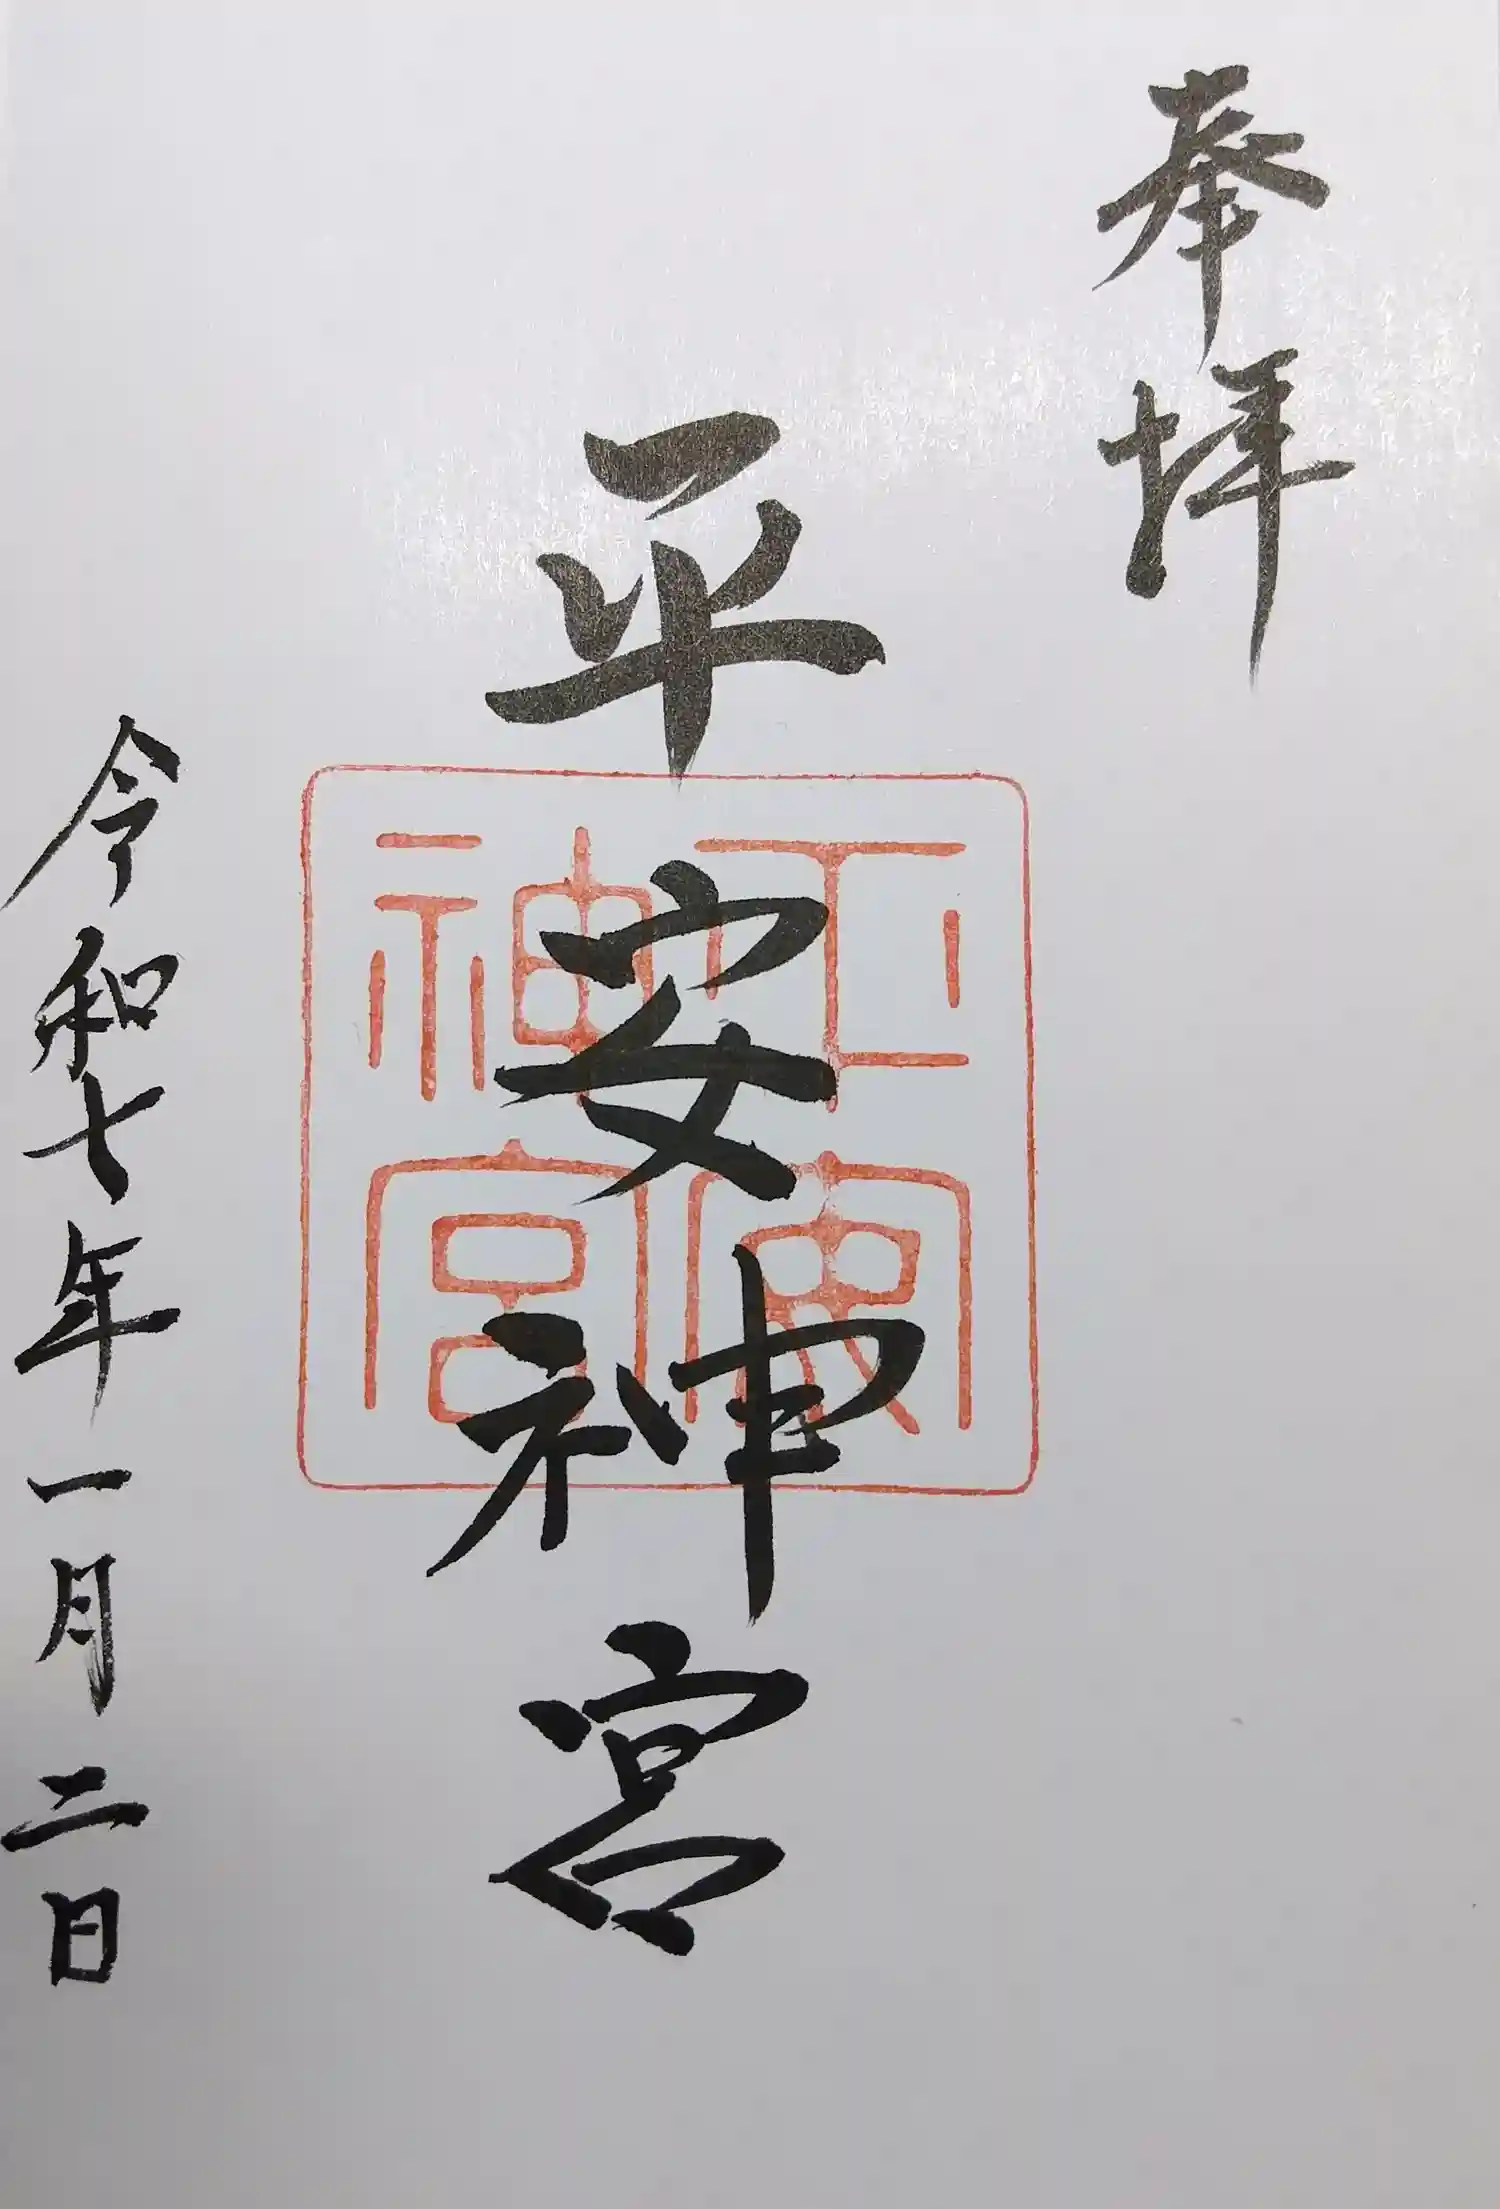 奉拝
平安神宮
平安神宮
令和七年一月二日